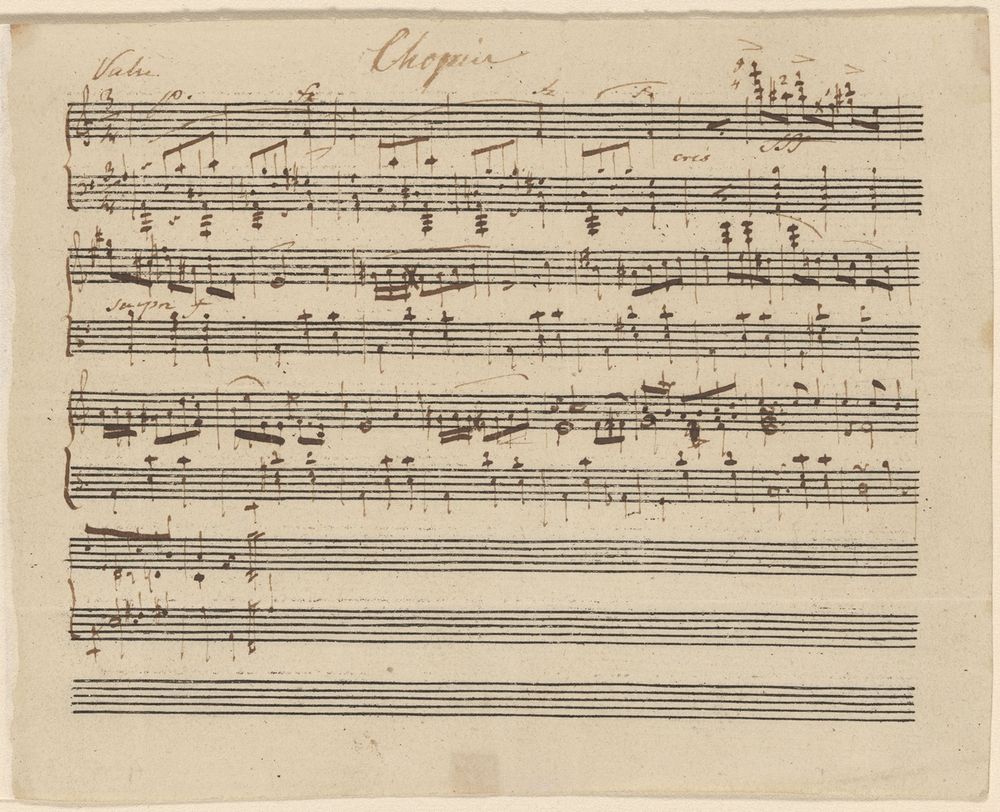 Chopin
Valse
3 p. fz fz fz 4 2
4
3 cres fff
4
sempre f